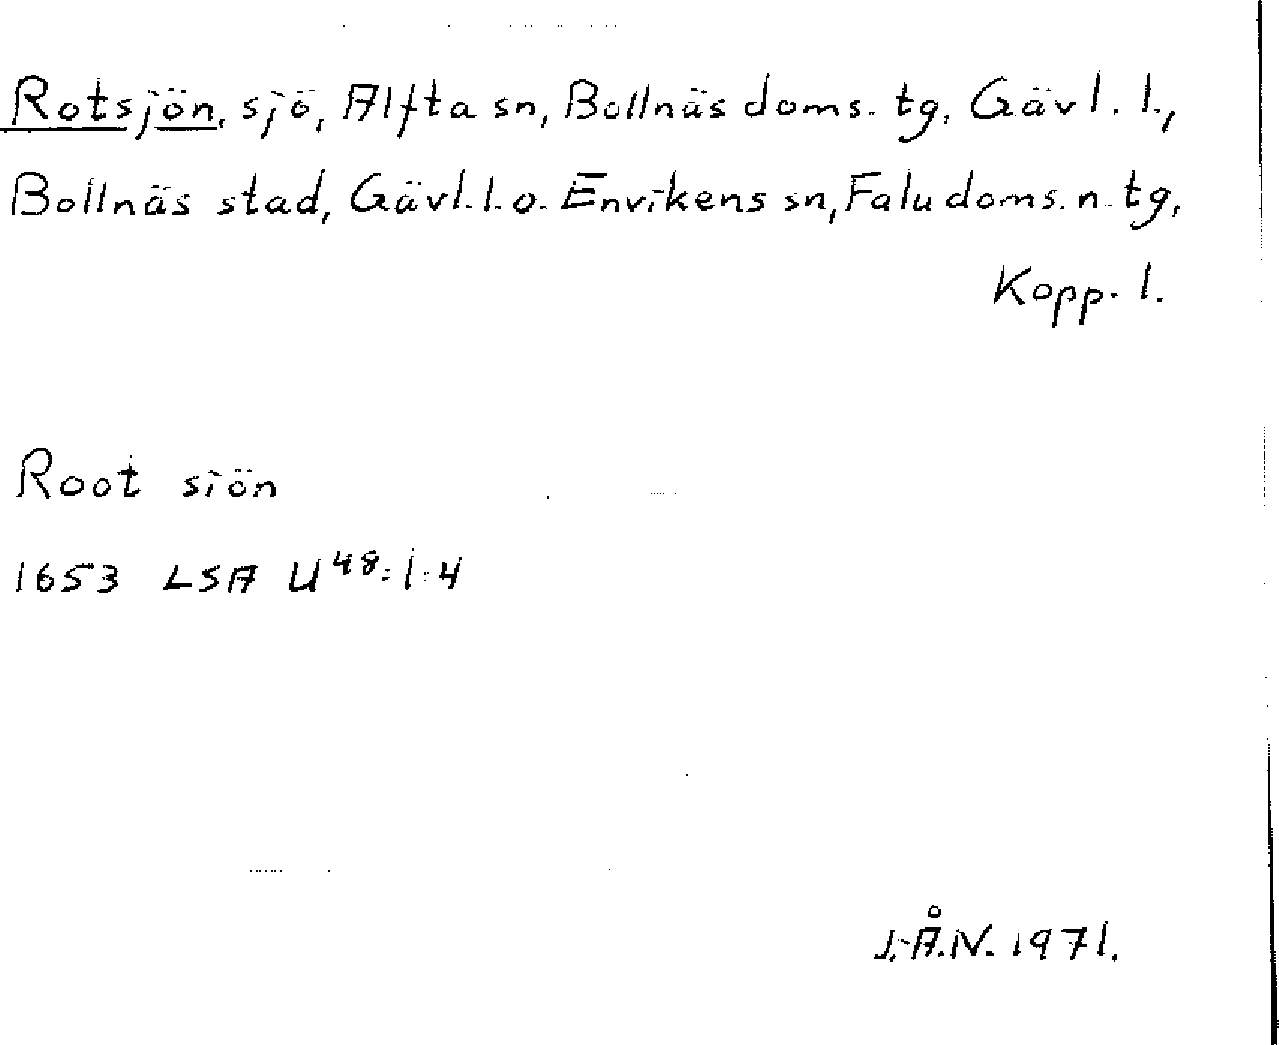 Rotsjön, sjö, Alfta sn, Bollnäs doms. tg, Gävl. l.,
Bollnäs stad, Gävl. l. o. Envikens sn, Falu doms. n. tg,
Kopp. l.
Root siön
1653 LSA U48:1:4
J.-Å.N. 1971.